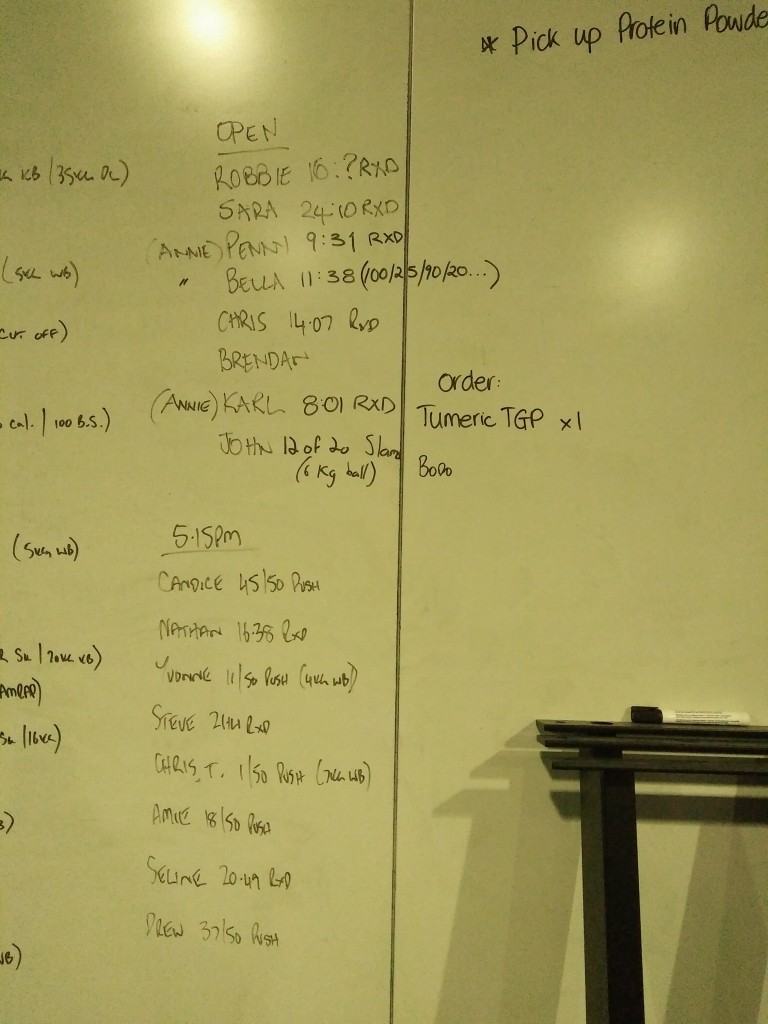 * Pick up Protein Powde
OPEN
KB / 35KG DL)
ROBBIE 16:? RXD
SARA 24:10 RXD
(ANNIE) PENNY 9:31 RXD
(5KG WB)
" BELLA 11:38 (100/25/90/20...)
CUT OFF)
CHRIS 14:07 RXD
BRENDAN
Order:
(ANNIE) KARL 8:01 RXD
Tumeric TGP x1
CAL. / 100 B.S.)
JOHN 12 of 20 Slams
(6 Kg ball)
BoDo
5.15PM
(5KG WB)
CANDICE 45/50 PUSH
NATHAN 16:38 RXD
SU / 20KG KB)
YVONNE 11/50 PUSH (4KG WB)
AMRAP)
STEVE 21:14 RXD
SU / 16KG)
CHRIS T. 1/50 PUSH (7KG WB)
AMIE 18/50 PUSH
SELINE 20:49 RXD
DREW 37/50 PUSH
WB)